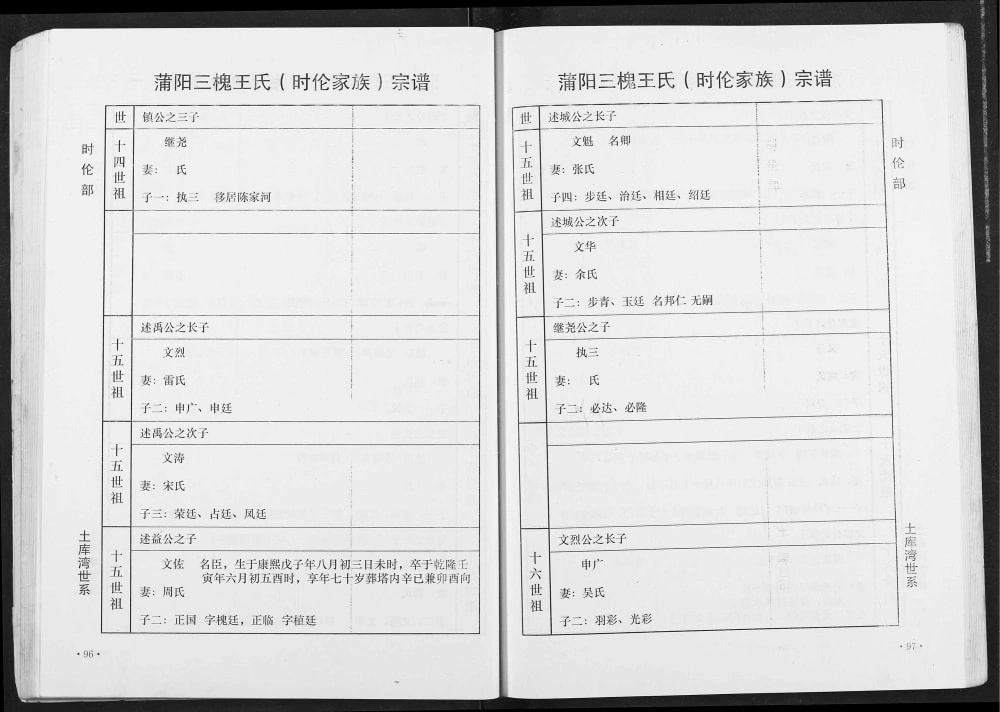 蒲阳三槐王氏（时伦家族）宗谱
时伦部
世 镇公之三子
十四世祖
继尧
妻： 氏
子一：执三 移居陈家河
十五世祖
述禹公之长子
文烈
妻：雷氏
子二：申广、申廷
十五世祖
述禹公之次子
文涛
妻：宋氏
子三：荣廷、占廷、凤廷
十五世祖
述益公之子
文佐 名臣，生于康熙戊子年八月初三日未时，卒于乾隆壬
寅年六月初五酉时，享年七十岁葬塔内辛已兼卯酉向
妻：周氏
子二：正国 字槐廷，正临 字植廷
土库湾世系
·96·
蒲阳三槐王氏（时伦家族）宗谱
世 述城公之长子
十五世祖
文魁 名卿
妻：张氏
子四：步廷、治廷、相廷、绍廷
十五世祖
述城公之次子
文华
妻：余氏
子二：步青、玉廷 名邦仁 无嗣
十五世祖
继尧公之子
执三
妻： 氏
子二：必达、必隆
十六世祖
文烈公之长子
申广
妻：吴氏
子二：羽彩、光彩
时伦部
土库湾世系
·97·